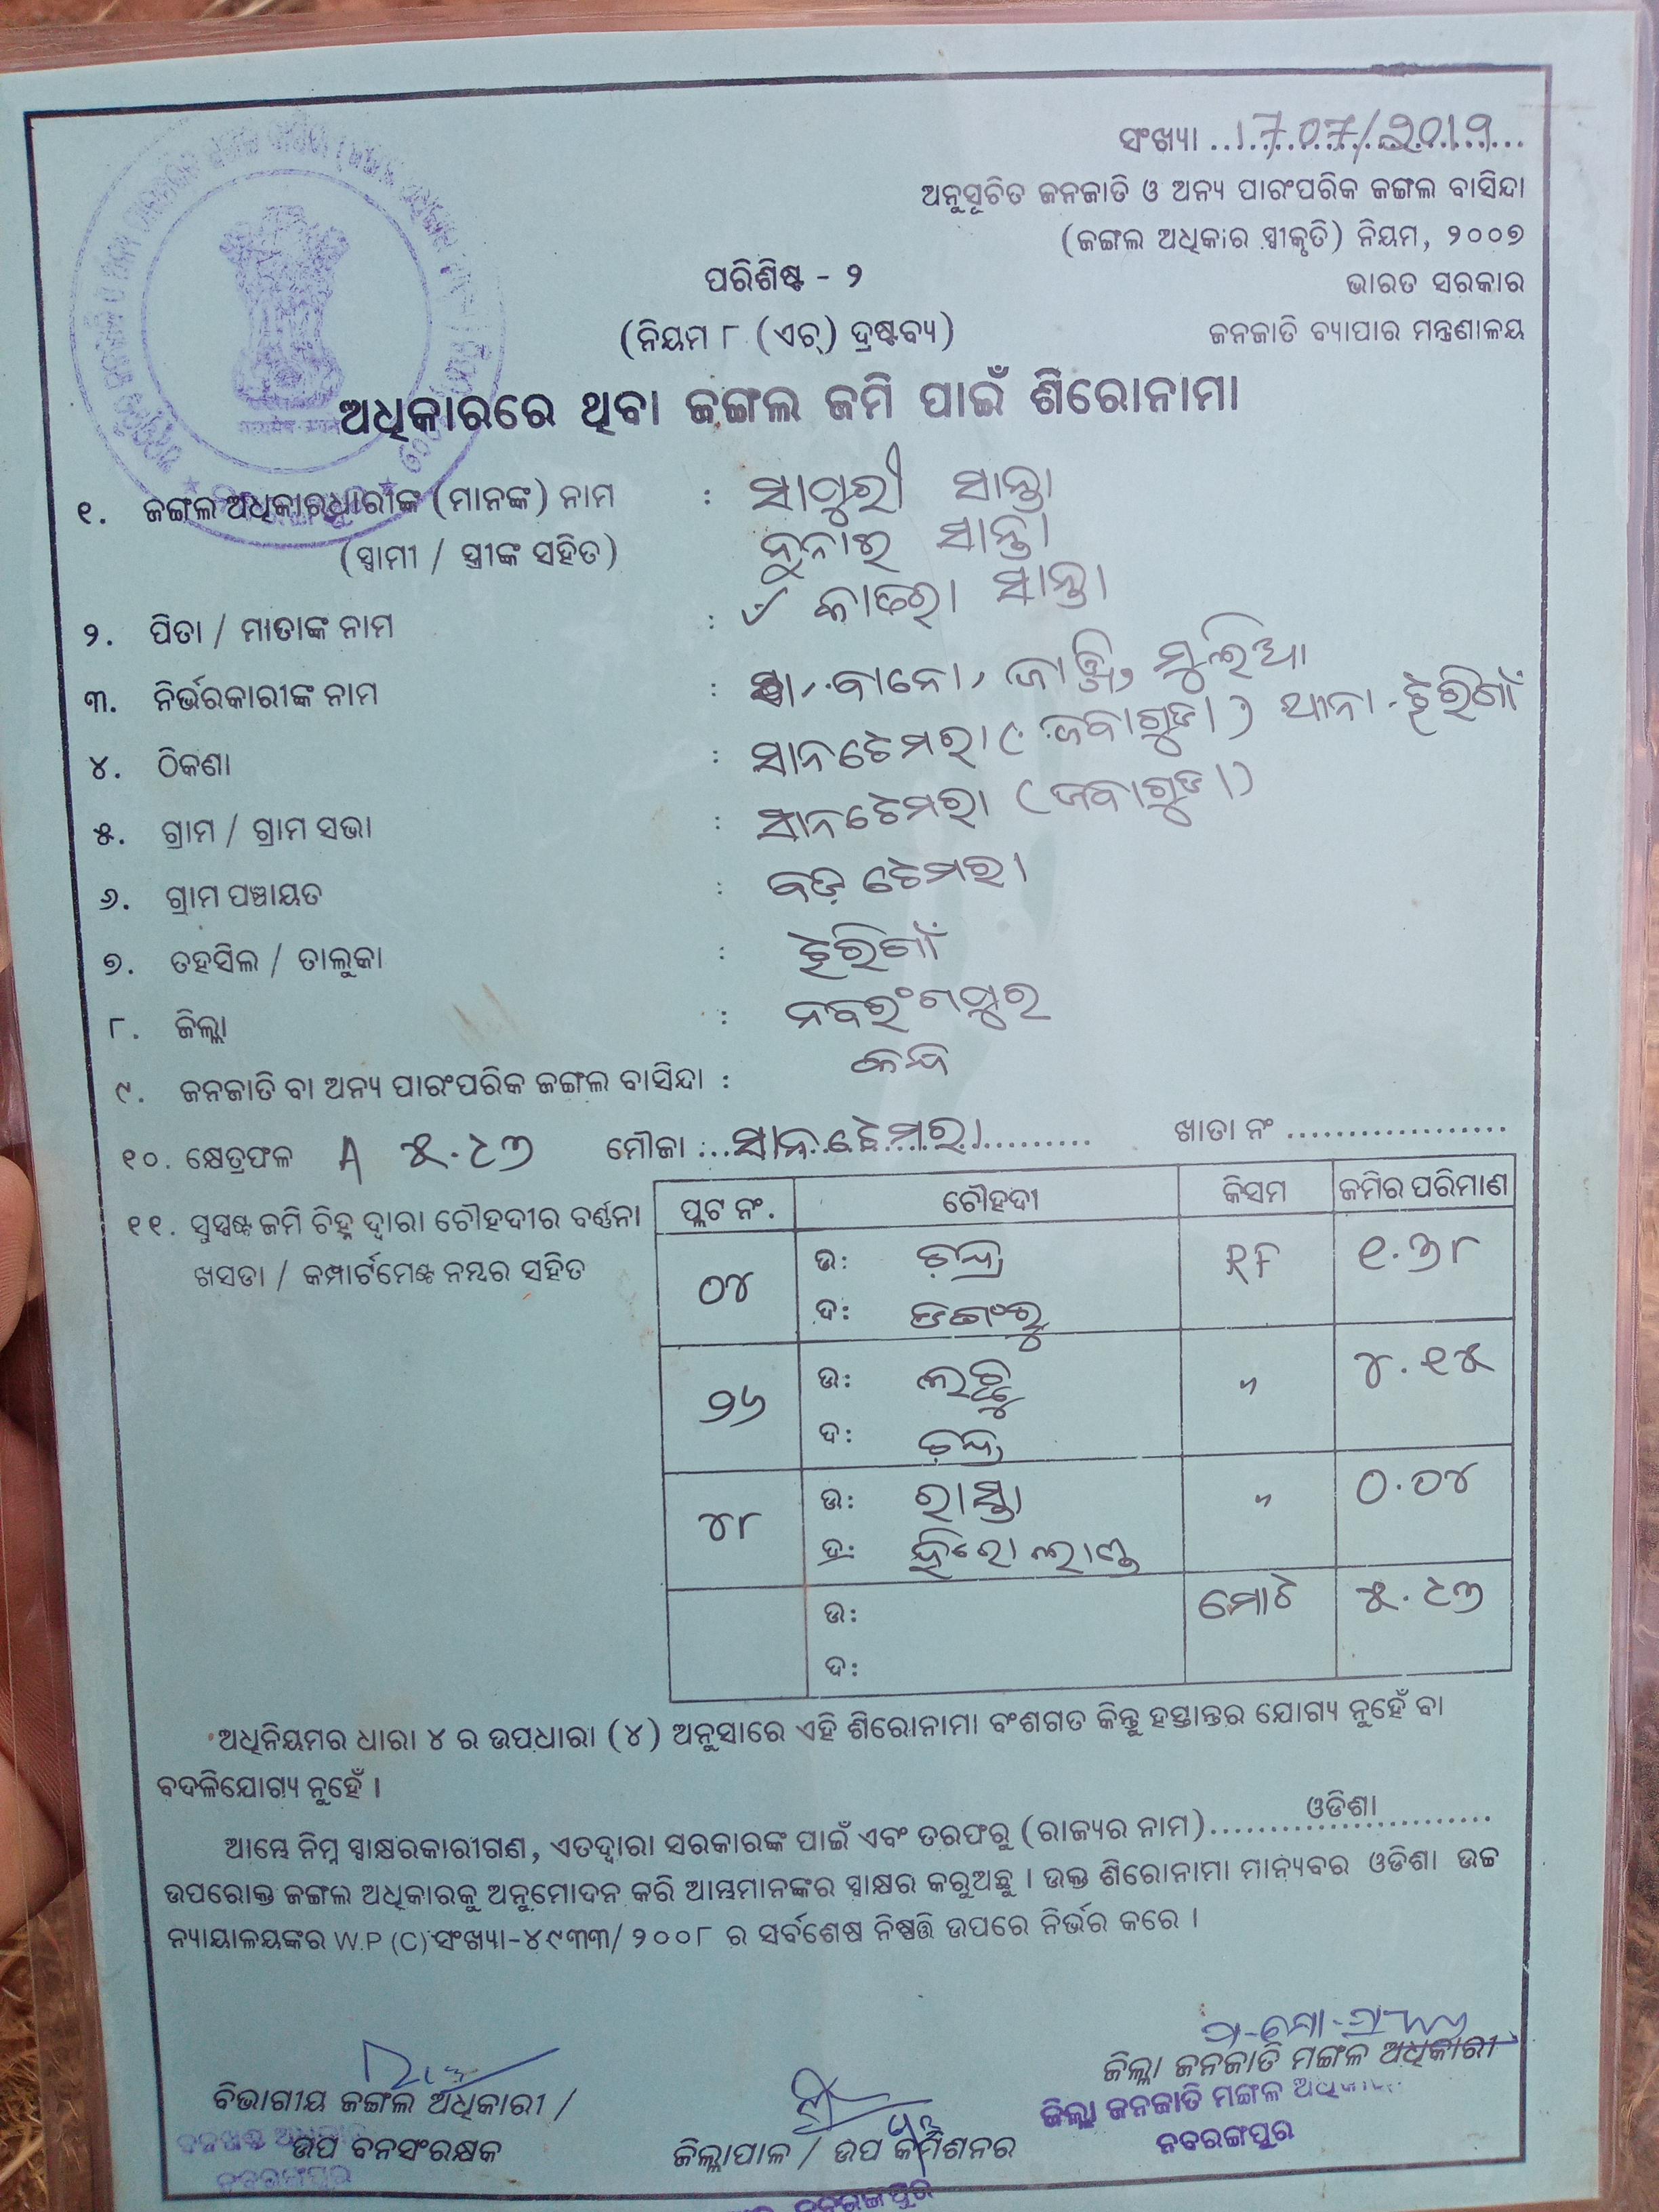 ସଂଖ୍ୟା ..1707/2019...
ଅନୁସୂଚିତ ଜନଜାତି ଓ ଅନ୍ୟ ପାରଂପରିକ ଜଙ୍ଗଲ ବାସିନ୍ଦା
(ଜଙ୍ଗଲ ଅଧିକାର ସ୍ୱୀକୃତି) ନିୟମ, ୨୦୦୭
ପରିଶିଷ୍ଟ - ୨
ଭାରତ ସରକାର
(ନିୟମ ୮ (ଏଚ୍) ଦ୍ରଷ୍ଟବ୍ୟ)
ଜନଜାତି ବ୍ୟାପାର ମନ୍ତ୍ରଣାଳୟ
ଅଧିକାରରେ ଥିବା ଜଙ୍ଗଲ ଜମି ପାଇଁ ଶିରୋନାମା
୧. ଜଙ୍ଗଲ ଅଧିକାରଧାରୀଙ୍କ (ମାନଙ୍କ) ନାମ : ସାମୁରୀ ସାନ୍ତା
(ସ୍ୱାମୀ / ସ୍ତ୍ରୀଙ୍କ ସହିତ) ସାନ୍ତା
୨. ପିତା / ମାତାଙ୍କ ନାମ : ସାନ୍ତା
୩. ନିର୍ଭରକାରୀଙ୍କ ନାମ : ମୁଲିଆ
୪. ଠିକଣା : ସାନଟେମରା (ଜବାଗୁଡା) ଥାନା - ଝରିଗାଁ
୫. ଗ୍ରାମ / ଗ୍ରାମ ସଭା : ସାନଟେମରା (ଜବାଗୁଡା)
୬. ଗ୍ରାମ ପଞ୍ଚାୟତ : ବଡ଼ ଟେମରା
୭. ତହସିଲ / ତାଲୁକା : ଝରିଗାଁ
୮. ଜିଲ୍ଲା : ନବରଂଗପୁର
୯. ଜନଜାତି ବା ଅନ୍ୟ ପାରଂପରିକ ଜଙ୍ଗଲ ବାସିନ୍ଦା : କନ୍ଧ
୧୦. କ୍ଷେତ୍ରଫଳ A ୫.୯୭ ମୌଜା : ସାନଟେମରା ଖାତା ନଂ ..................
୧୧. ସୁସ୍ପଷ୍ଟ ଜମି ଚିହ୍ନ ଦ୍ୱାରା ଚୌହଦୀର ବର୍ଣ୍ଣନା
ଖସଡା / କମ୍ପାର୍ଟମେଣ୍ଟ ନମ୍ବର ସହିତ
ପ୍ଲଟ ନଂ. ଚୌହଦୀ କିସମ ଜମିର ପରିମାଣ
୦୪ ଉ: ଚନ୍ଦ୍ର RF ୧.୭୮
ଦ: ଡଗଂରୁ
୨୬ ଉ: ଲଚ୍ଛୁ " ୪.୧୫
ଦ: ଚନ୍ଦ୍ର
୪୮ ଉ: ରାସ୍ତା " ୦.୦୪
ଦ: ହିରୋ ଲାଣ୍ଡ
ଉ: ମୋଟ ୫.୯୭
ଦ:
ଅଧିନିୟମର ଧାରା ୪ ର ଉପଧାରା (୪) ଅନୁସାରେ ଏହି ଶିରୋନାମା ବଂଶଗତ କିନ୍ତୁ ହସ୍ତାନ୍ତର ଯୋଗ୍ୟ ନୁହେଁ ବା
ବଦଳିଯୋଗ୍ୟ ନୁହେଁ ।
ଆମ୍ଭେ ନିମ୍ନ ସ୍ୱାକ୍ଷରକାରୀଗଣ, ଏତଦ୍ୱାରା ସରକାରଙ୍କ ପାଇଁ ଏବଂ ତରଫରୁ (ରାଜ୍ୟର ନାମ) ଓଡିଶା
ଉପରୋକ୍ତ ଜଙ୍ଗଲ ଅଧିକାରକୁ ଅନୁମୋଦନ କରି ଆମ୍ଭମାନଙ୍କର ସ୍ୱାକ୍ଷର କରୁଅଛୁ । ଉକ୍ତ ଶିରୋନାମା ମାନ୍ୟବର ଓଡିଶା ଉଚ୍ଚ
ନ୍ୟାୟାଳୟଙ୍କର W.P (C) ସଂଖ୍ୟା-୪୯୩୩/୨୦୦୮ ର ସର୍ବଶେଷ ନିଷ୍ପତ୍ତି ଉପରେ ନିର୍ଭର କରେ ।
ଜିଲ୍ଲା ଜନଜାତି ମଙ୍ଗଳ ଅଧିକାରୀ
ଜିଲ୍ଲା ଜନଜାତି ମଙ୍ଗଳ
ନବରଙ୍ଗପୁର
ବିଭାଗୀୟ ଜଙ୍ଗଲ ଅଧିକାରୀ /
ଉପ ବନସଂରକ୍ଷକ
ଜିଲ୍ଲାପାଳ / ଉପ କମିଶନର
ନବରଙ୍ଗପୁର
ନବରଙ୍ଗପୁର